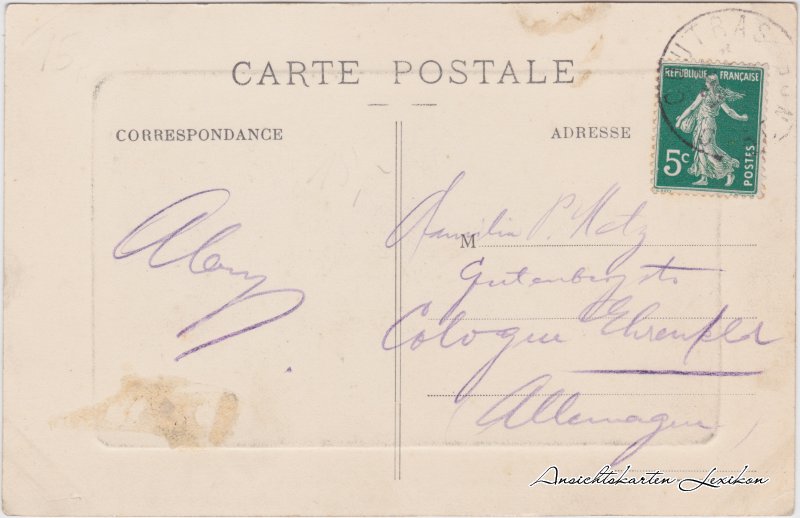 CARTE POSTALE
CORRESPONDANCE
ADRESSE
COUTRAS
REPUBLIQUE FRANÇAISE
5c
POSTES
Familie P. Metz
M
Gutenbergstr
Cologne Ehrenfeld
Allemagne
Ansichtskarten-Lexikon